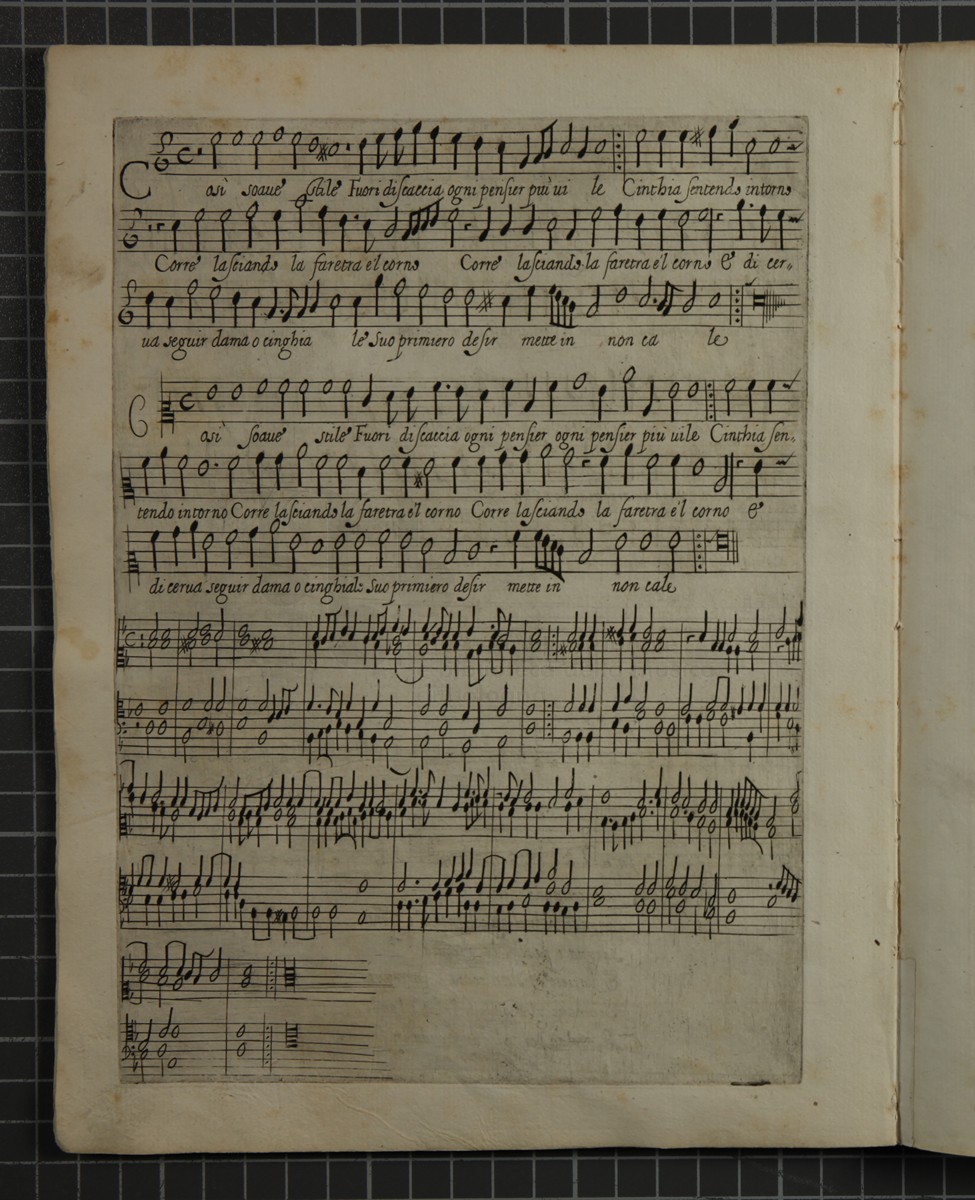 Cosi soaue stile Fuori discaccia ogni pensier più ui le Cinthia sentendo intorno
Corre lasciando la faretra e'l corno Corre lasciando la faretra e'l corno E di cer„
ua seguir dama o cinghia le Suo primiero desir mette in non ca le
Cosi soaue stile Fuori discaccia ogni pensier ogni pensier piu uile Cinthia sen„
tendo intorno Corre lasciando la faretra e'l corno Corre lasciando la faretra e'l corno E
di cerua seguir dama o cinghiale Suo primiero desir mette in non cale